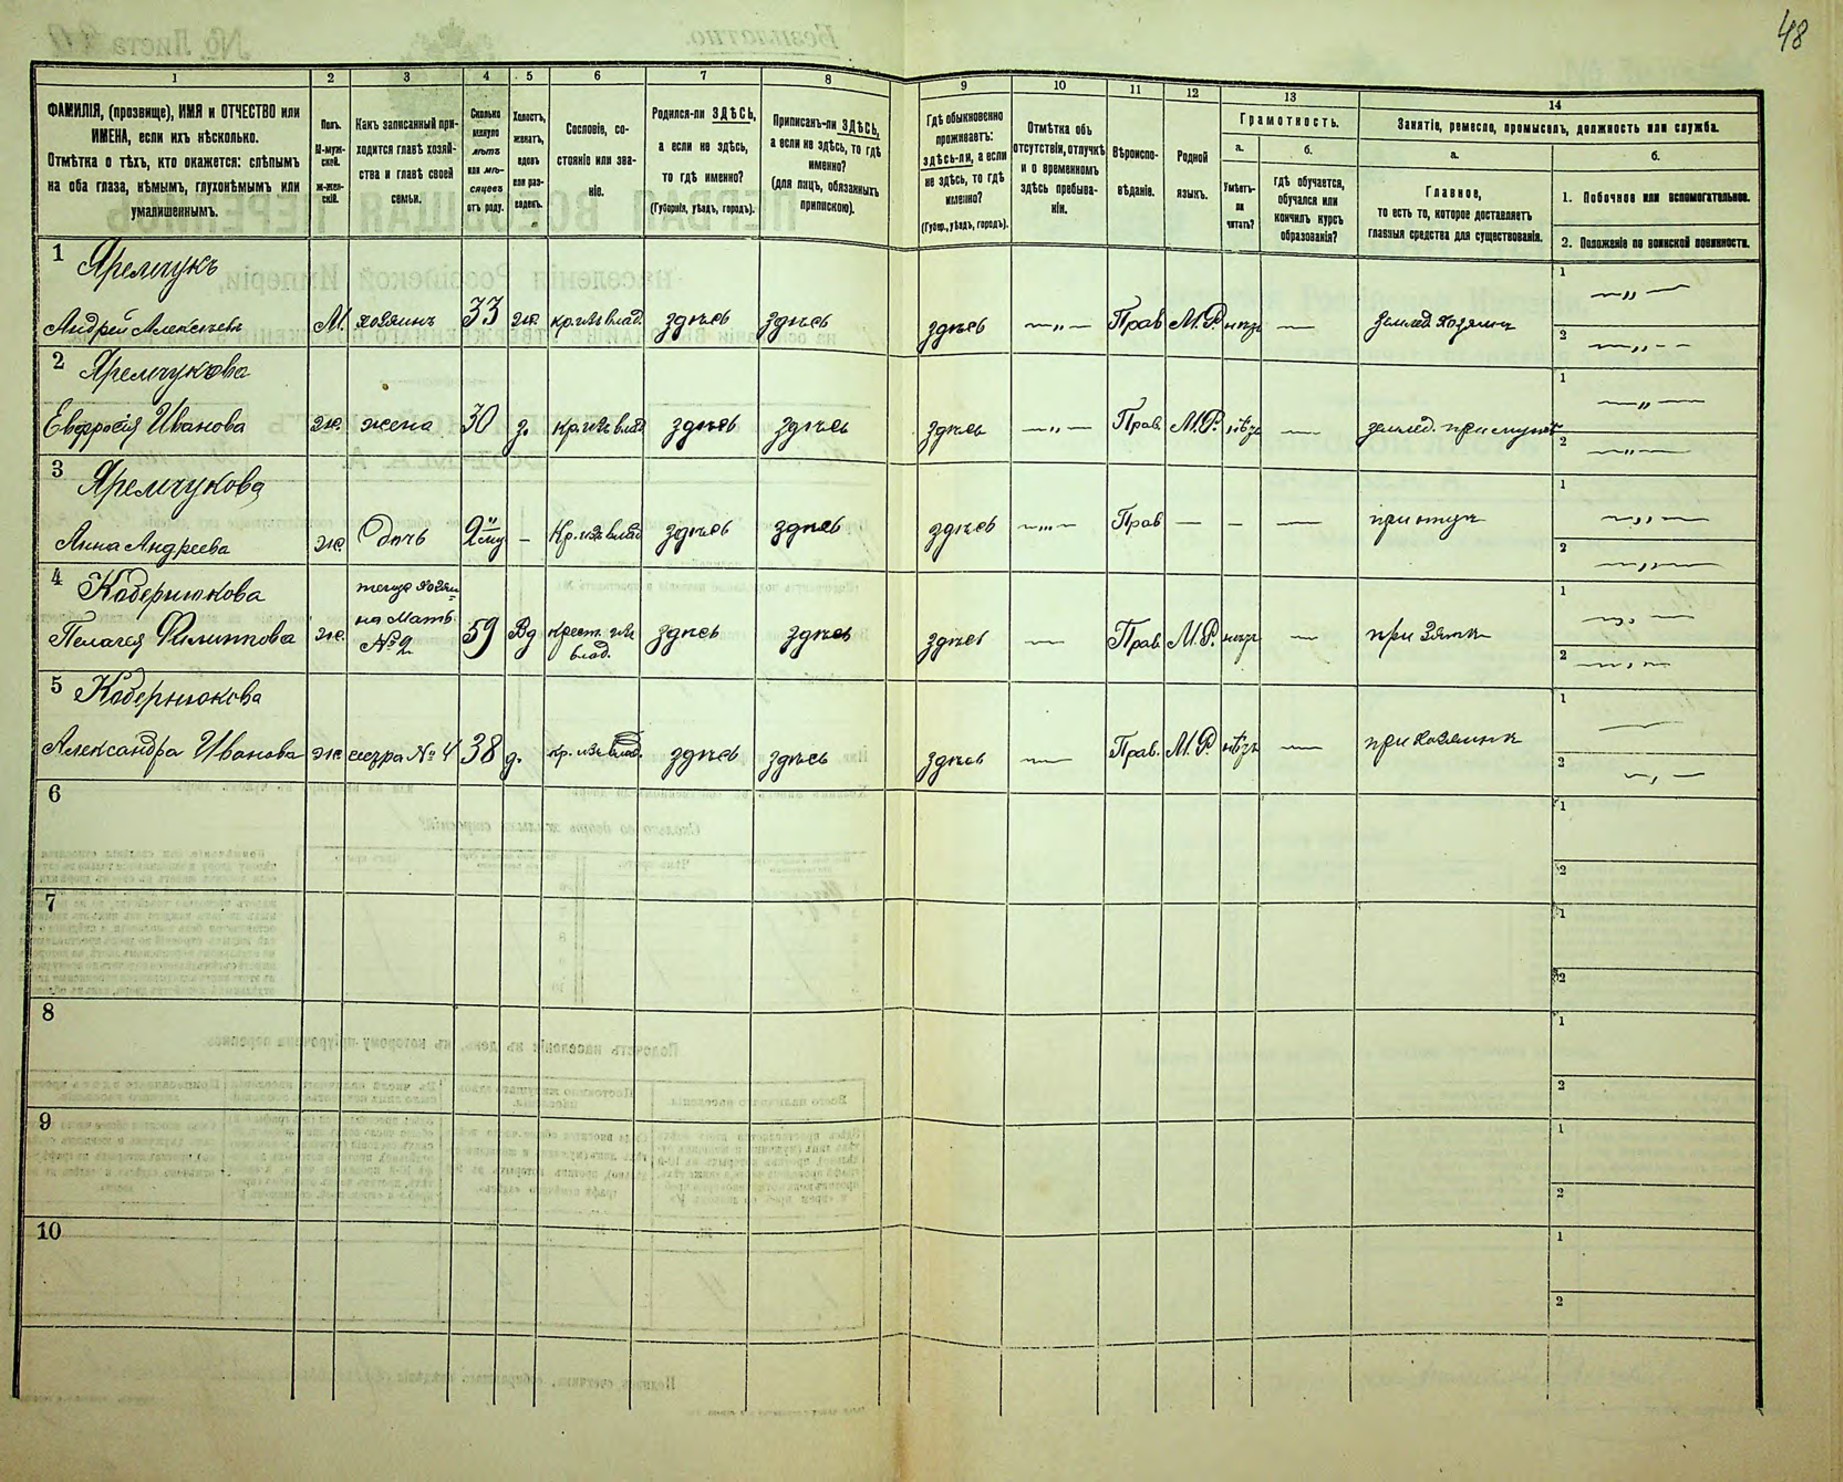 48
1 2 3 4 5 6 7 8 9 10 11 12 13 14
ФАМИЛІЯ, (прозвище), ИМЯ и ОТЧЕСТВО или
ИМЕНА, если ихъ нѣсколько.
Отмѣтка о тѣхъ, кто окажется: слѣпымъ
на оба глаза, нѣмымъ, глухонѣмымъ или
умалишеннымъ.
Полъ.
М-муж-
ской.
Ж-жен-
скій.
Какъ записанный при-
ходится главѣ хозяй-
ства и главѣ своей
семьи.
Сколько
минуло
лѣтъ
или мѣ-
сяцевъ
отъ роду.
Холостъ,
женатъ,
вдовъ
или раз-
веденъ.
Сословіе, со-
стояніе или зва-
ніе.
Родился-ли ЗДѢСЬ,
а если не здѣсь,
то гдѣ именно?
(Губернія, уѣздъ, городъ).
Приписанъ-ли ЗДѢСЬ,
а если не здѣсь, то гдѣ
именно?
(для лицъ, обязанныхъ
припискою).
Гдѣ обыкновенно
проживаетъ:
здѣсь-ли, а если
не здѣсь, то гдѣ
именно?
(Губер., уѣздъ, городъ).
Отмѣтка объ
отсутствіи, отлучкѣ
и о временномъ
здѣсь пребыва-
ніи.
Вѣроиспо-
вѣданіе.
Родной
языкъ.
Грамотность.
а.
Умѣетъ-
ли
читать?
б.
гдѣ обучается,
обучался или
кончилъ курсъ
образованія?
Занятіе, ремесло, промыселъ, должность или служба.
а.
Главное,
то есть то, которое доставляетъ
главныя средства для существованія.
б.
1. Побочное или вспомогательное.
2. Положеніе по воинской повинности.
1 Яремчукъ
Андрей Алексѣевъ М. хозяинъ 33 ж. кр. изъ влад. здѣсь здѣсь здѣсь — „ — Прав М.Р. — землед. хозяинъ
1 — „ —
2 — „ — —
2 Яремчукова
Евфросія Иванова ж. жена 30 з. кр. изъ влад здѣсь здѣсь здѣсь — „ — Прав. М.Р. — землед. при мужѣ
1 — „ —
2 — „ —
3 Яремчукова
Анна Андреева ж. дочь — Кр. изъ влад здѣсь здѣсь здѣсь — „ — Прав — — — при отцѣ
1 — „ —
2 — „ —
4
теща хозяи=
на Мать
№ 2
Пелагея Филиппова ж. 59 Вд крест. изъ
влад. здѣсь здѣсь здѣсь — Прав. М.Р. — при зятѣ
1 — „ —
2 — „ —
5
Александра Иванова ж. № 4 38 д. кр. изъ влад. здѣсь здѣсь здѣсь — Прав. М.Р. — при хозяинѣ
1 —
2 — „ —
6 1
2
7 1
2
8 1
2
9 1
2
10 1
2